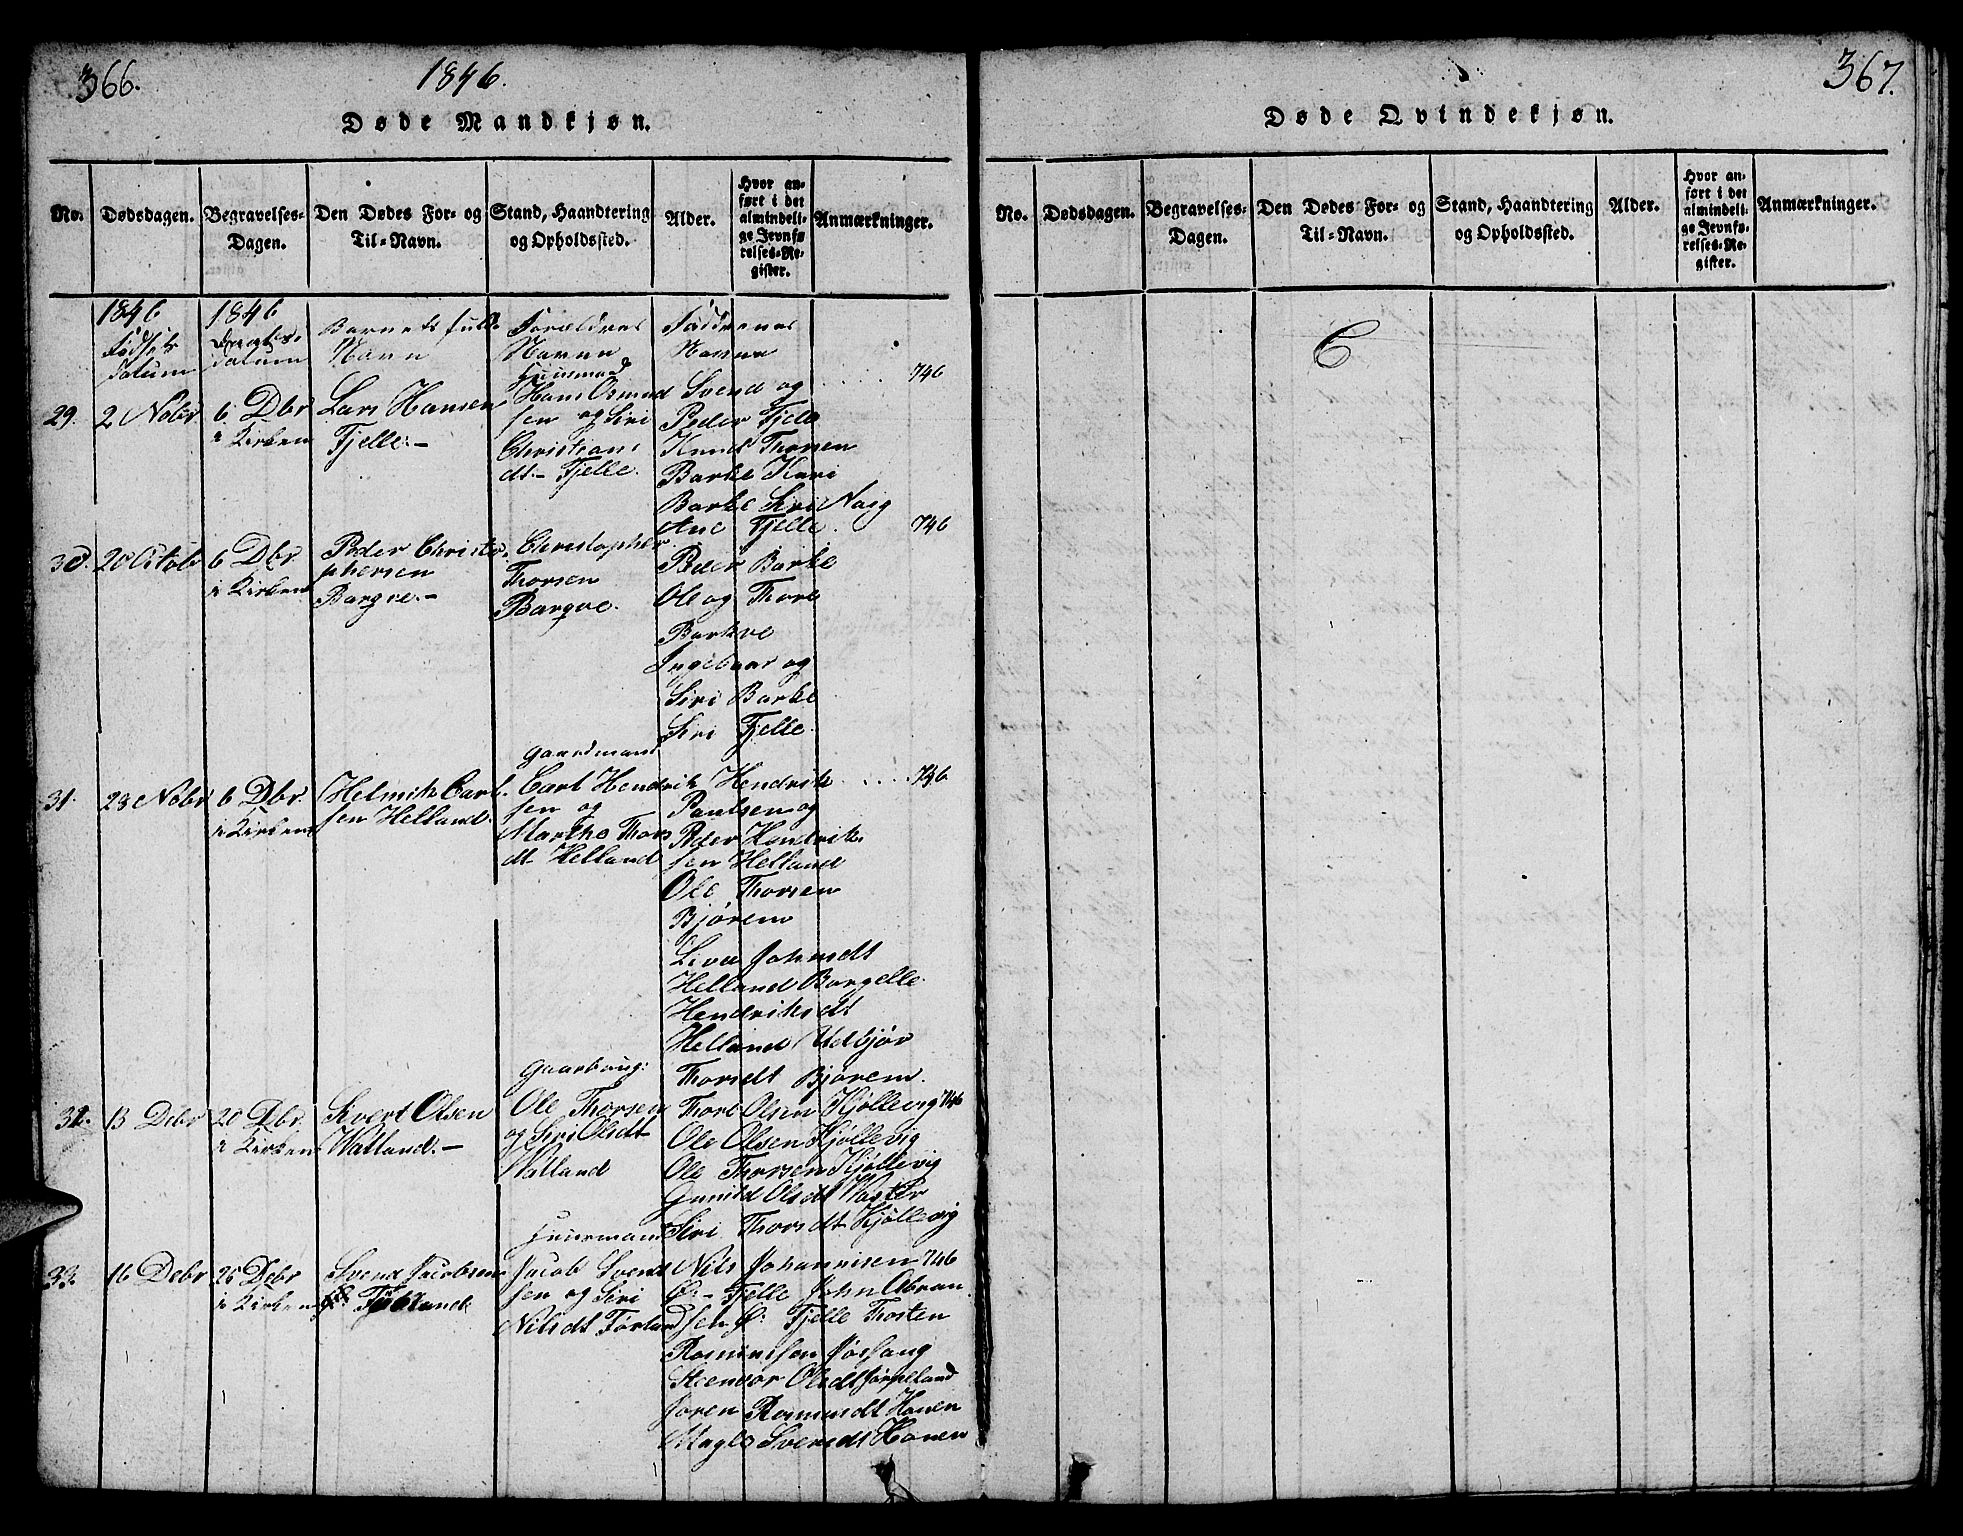 366.
1846.
Døde Mandkjøn.
No.
Dødsdagen.
Begravelses-
Dagen.
Den Dødes For- og
Til-Navn.
Stand, Haandtering
og Opholdssted.
Alder.
Hvor an-
ført i det
almindeli-
ge Jevnfø-
relses-Re-
gister.
Anmærkninger.
1846
Fødsels
datum
1846
datum
Barnets fulde
Navn
Forældres
Navne
Faddrenes
Navne
29.
2 Nobr
6 Dbr
i Kirken
Lars Hansen
Fjelle.-
Huusmand
Hans Osmund
sen og Siri
Christians
dt.- Fjelle.
Svend og
Peder Fjelle
Knud Thorsen
Barke Kari
Barke Siri
Ane Fjelle.
746
30.
20 Octobr
6 Dbr
i Kirken
Peder Christo
phersen
Bargve.-
Christopher
Thorsen
Barqve.
Peder Barke
Ole og Thore
Barkve
Ingebaar og
Siri Barke
Siri Fjelle.
746
31.
23 Nobr
6 Dbr.
i Kirken
Helmik Carl-
sen Helland.
Gaardmand
Carl Hendrik
sen og
Martha Thors
dt. Helland
Hendrik
Paulsen og
Peder Hendrik
sen Helland
Ole Thorsen
Bjørem
Liva Johnsdt
Helland Borgelle
Hendriksdt
Helland Udbjør
Thorsdt Bjørem.
746
32.
13 Debr
20 Dbr.
i Kirken
Sivert Olsen
Watland.-
Gaardbrug:
Ole Thorsen
og Siri Olsdt
Watland
Thore Olsen Kjøllevig
Ole Olsen Kjøllevig
Ole Thorsen Kjøllevig
Gunild Olsdt Waster
Siri Thorsdt Kjøllevig
746
33.
16 Debr
26 Debr
i Kirken
Svend Jacobsen
Huusmand
Jacob Svend
sen og Siri
Nilsdt Førland
Nils Johannisen
Ø:- Fjelle John Abram
sen Ø: Fjelle Thosten
Rasmussen Jøssang
Steenvor Olsdt Jørpeland
Søren Rasmusdt Honen
Magla Svensdt Honen
746
367.
Døde Qvindekjøn.
No.
Dødsdagen.
Begravelses-
Dagen.
Den Dødes For- og
Til-Navn.
Stand, Haandtering
og Opholdssted.
Alder.
Hvor an-
ført i det
almindeli-
ge Jevnfø-
relses-Re-
gister.
Anmærkninger.